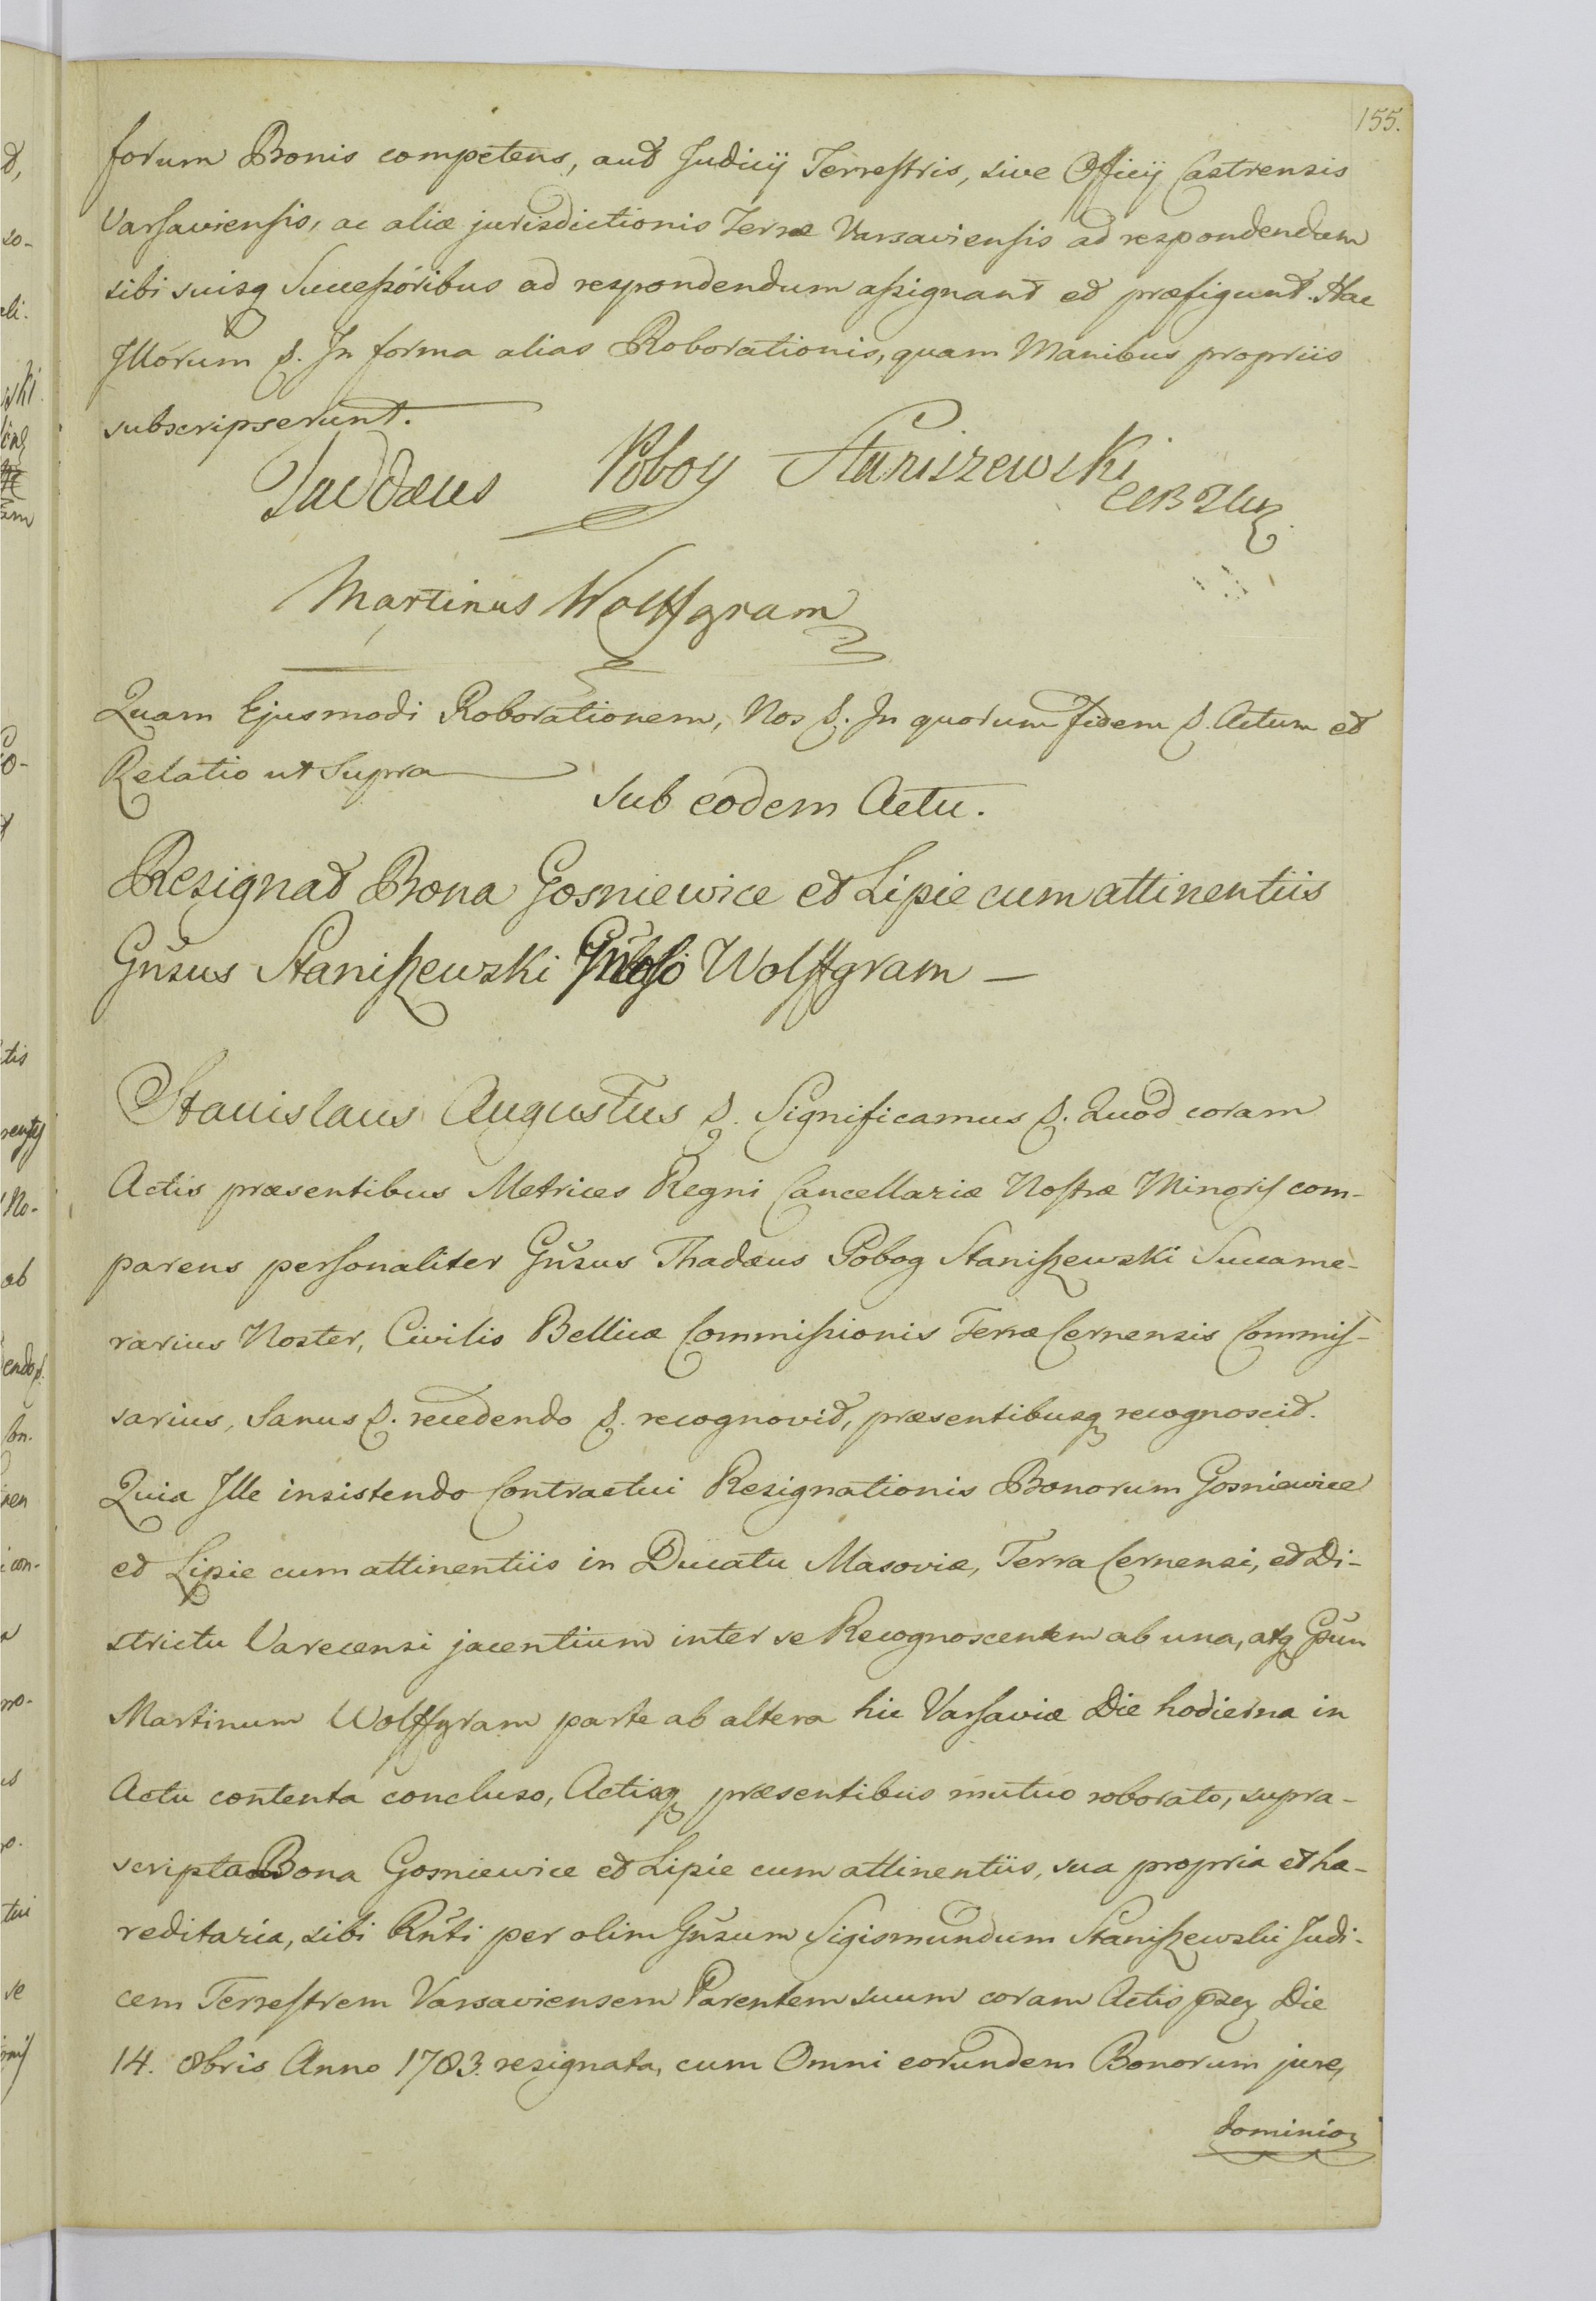 155.
forum Bonis competens, aut Judicij Terrestris, sive Officij Castrensis
Varsaviensis, ac aliæ jurisdictionis Terræ Varsaviensis ad respondendum
sibi suisq Successóribus ad respondendum assignant et præfigunt. Hac
Illórum &. In forma alias Roborationis, quam Manibus propriis
subscripserunt.
Taddæus Poboy Staniszewski
Martinus Wolffgram
Quam Ejusmodi Roborationem, Nos &. In quorum fidem &. Actum et
Relatio ut Supra
Sub eodem Actu.
Resignat Bona Gosniewice et Lipie cum attinentiis
Gnsus Staniszewski Wolffgram —
Stanislaus Augustus &. Significamus &. Quod coram
Actis præsentibus Metrices Regni Cancellariæ Nostræ Minoris com-
parens personaliter Gnsus Thadæus Pobog Staniszewski Succame-
rarius Noster, Civilis Bellicæ Commissionis Terræ Cernensis Commis-
sarius, Sanus &. recedendo &. recognovit, præsentibusq recognoscit.
Quia Ille insistendo Contractui Resignationis Bonorum Gosniewice
et Lipie cum attinentiis in Ducatu Masoviæ, Terra Cernensi, et Di-
strictu Varecensi jacentium inter se Recognoscentem ab una, atq Gsum
Martinum Wolffgram parte ab altera hic Varsaviæ Die hodierna in
Actu contenta concluso, Actisq præsentibus mutuo roborato, supra-
scripta Bona Gosniewice et Lipie cum attinentiis, sua propria et hæ-
reditaria, sibi Rnti per olim Gnsum Sigismundum Staniszewski Judi-
cem Terrestrem Varsaviensem Parentem suum coram Actis Die
14. 8bris Anno 1783. resignata, cum Omni eorundem Bonorum jure,
dominio